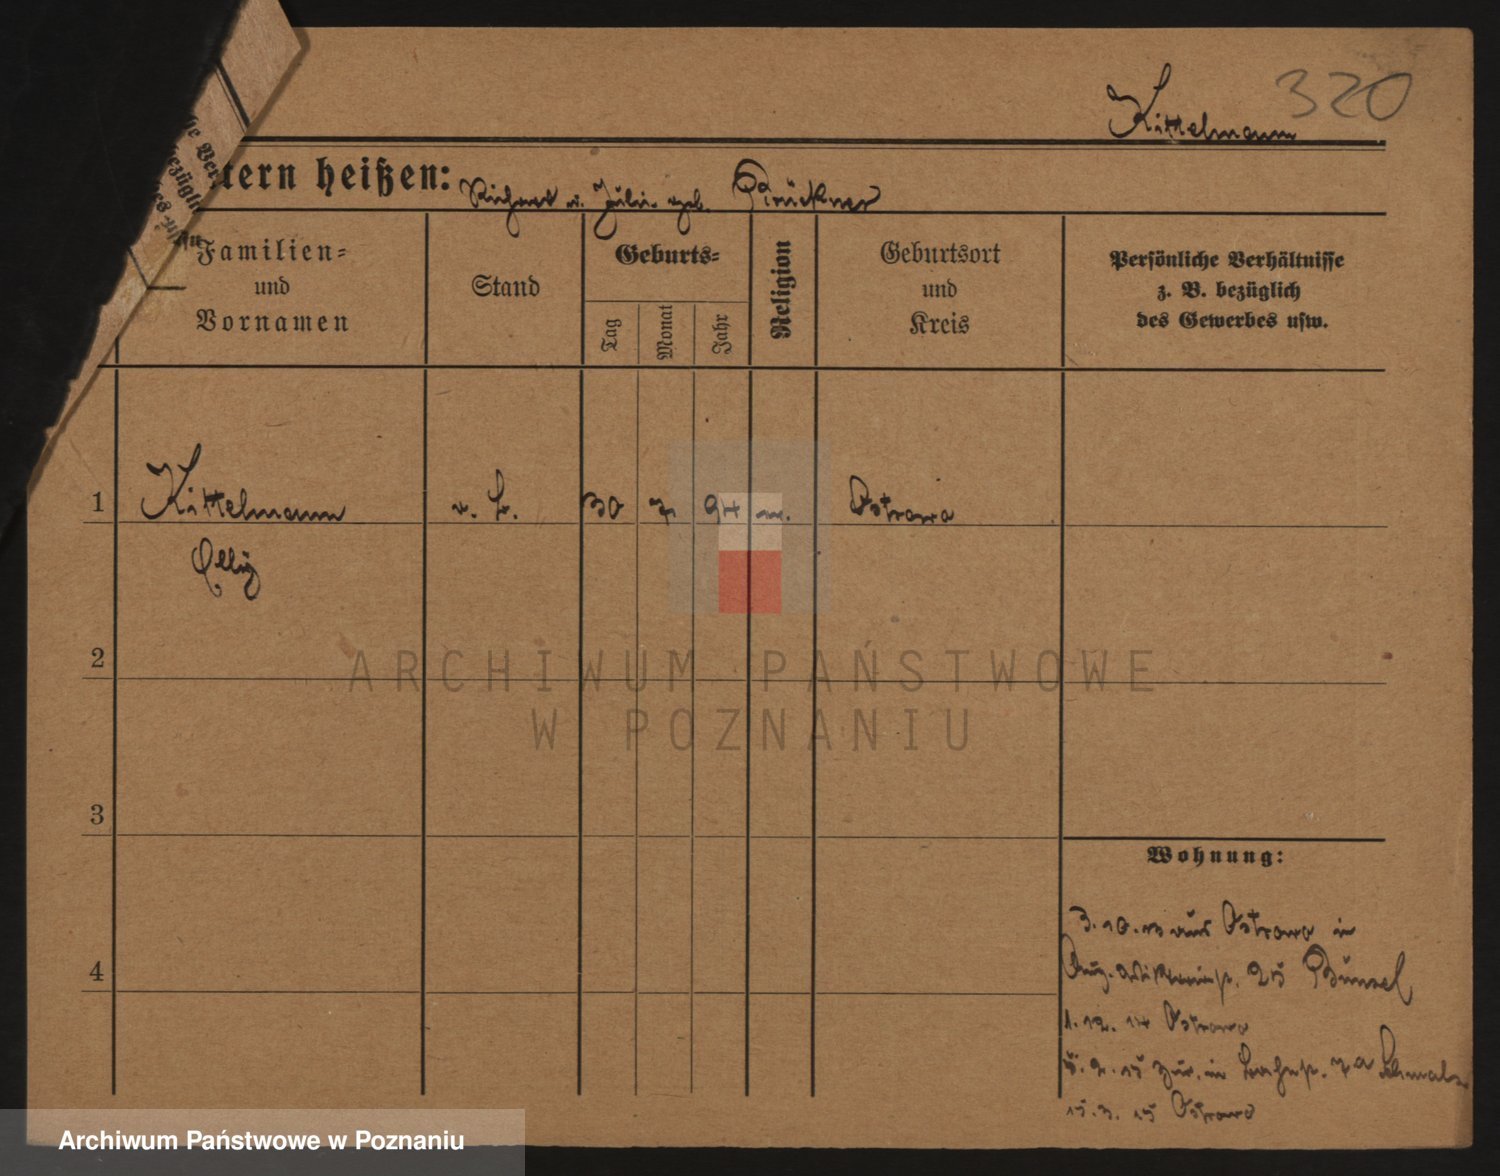 320
Kittelmann
tern heißen: Richard u. Julie geb. Brückner
Familien=
und
Vornamen
Stand
Geburts=
Tag
Monat
Jahr
Religion
Geburtsort
und
Kreis
Persönliche Verhältnisse
z. B. bezüglich
des Gewerbes usw.
1 Kittelmann 30 7 94 Ostrowo
Elly
2
3
4
Wohnung:
3.10.13 aus Ostrowo in
Aug. 25 Bünsel
1.12.14 Ostrowo
5.2.15 zur. in 7a Schmalz
15.3.15 Ostrowo
ARCHIWUM PAŃSTWOWE
W POZNANIU
Archiwum Państwowe w Poznaniu